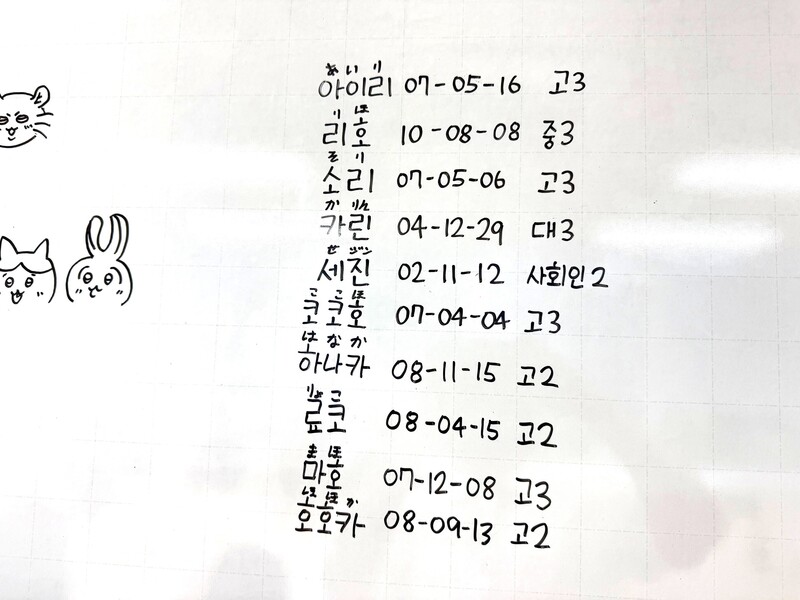 あいり
아이리 07-05-16 고3
りほ
리호 10-08-08 중3
そり
소리 07-05-06 고3
かりん
카린 04-12-29 대3
せジン
세진 02-11-12 사회인2
ここほ
코코호 07-04-04 고3
はなか
하나카 08-11-15 고2
りょこ
료코 08-04-15 고2
まほ
마호 07-12-08 고3
か
오오카 08-09-13 고2